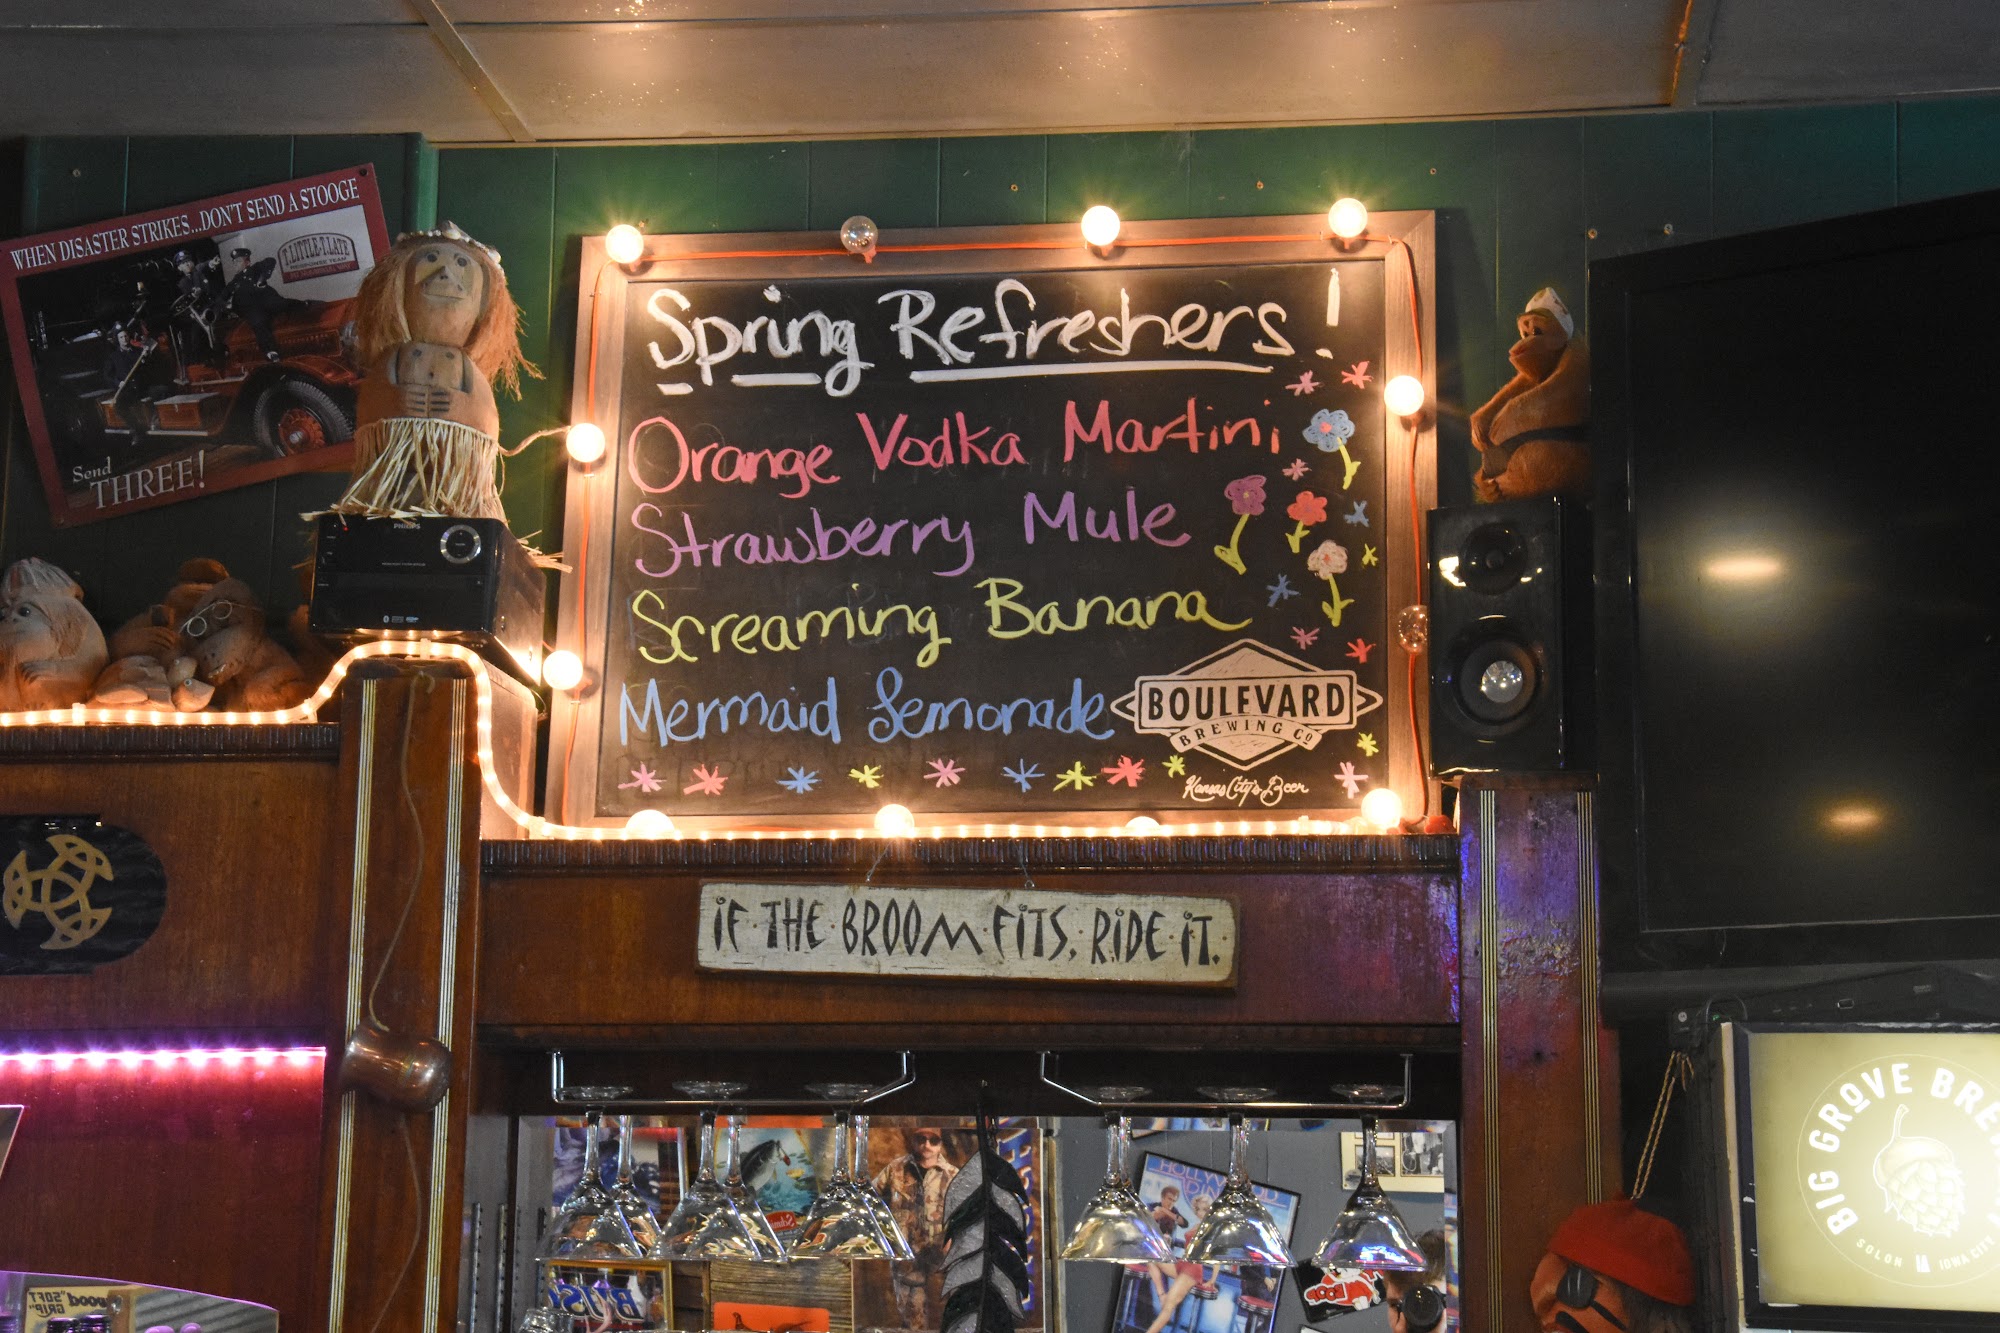 WHEN DISASTER STRIKES...DON'T SEND A STOOGE
T.LITTLE-T.LATE
RESPONSE TEAM
Send
THREE!
PHILIPS
Spring Refreshers!
Orange Vodka Martini
Strawberry Mule
Screaming Banana
Mermaid Lemonade
BOULEVARD
BREWING Cº
Kansas City's Beer
IF THE BROOM FITS, RIDE IT.
BIG GROVE BRE
SOLON IA IOWA CITY
HOLLYWOOD
"SOFT
GRIP"